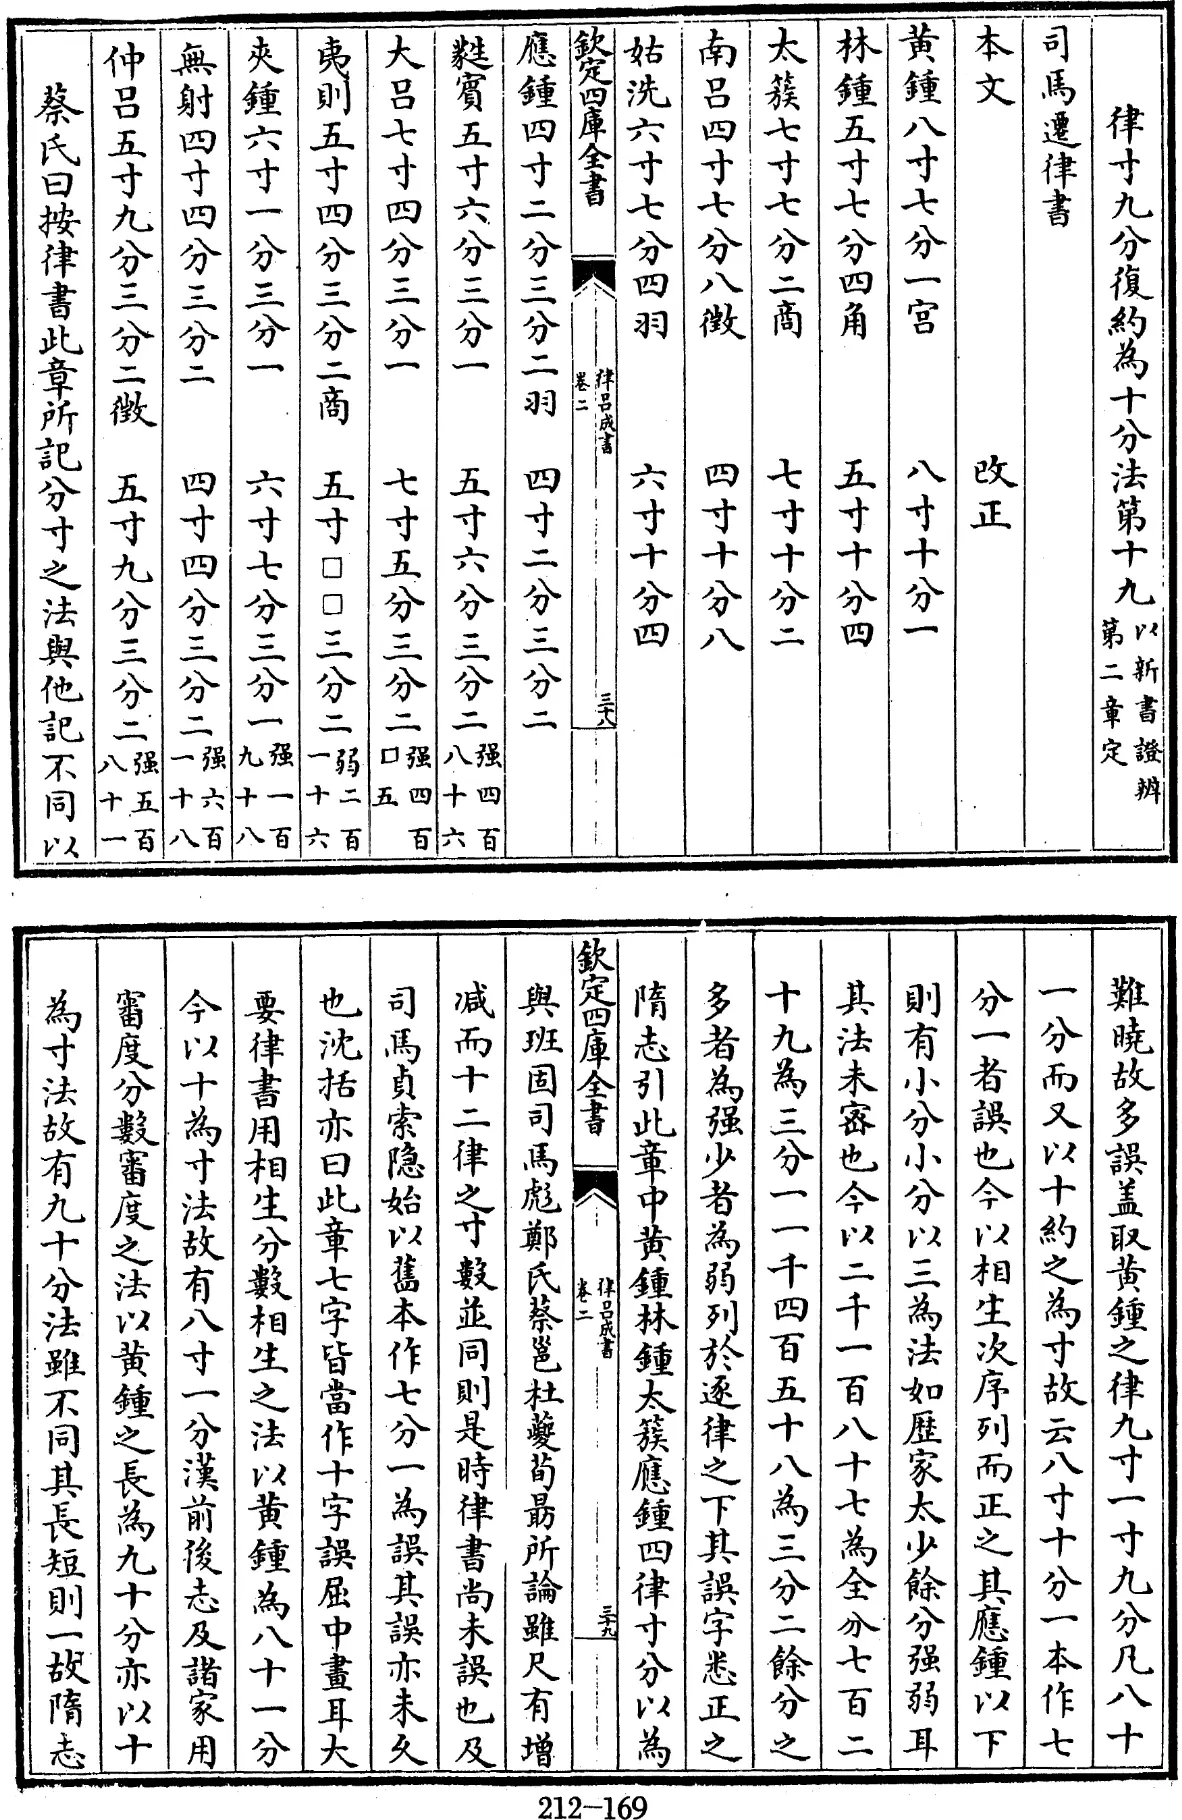 律寸九分復約為十分法第十九以新書證辨第二章定
司馬遷律書
本文 改正
黃鍾八寸七分一宮 八寸十分一
林鍾五寸七分四角 五寸十分四
太簇七寸七分二商 七寸十分二
南呂四寸七分八徵 四寸十分八
姑洗六寸七分四羽 六寸十分四
欽定四庫全書 律呂成書卷二 三十八
應鍾四寸二分三分二羽 四寸二分三分二
蕤賓五寸六分三分一 五寸六分三分二强四百八十六
大呂七寸四分三分一 七寸五分三分二强四百□五
夷則五寸四分三分二商 五寸□□三分二弱二百一十六
夾鍾六寸一分三分一 六寸七分三分一强一百九十八
無射四寸四分三分二 四寸四分三分二强六百一十八
仲呂五寸九分三分二徵 五寸九分三分二强五百八十一
蔡氏曰按律書此章所記分寸之法與他記不同以
難曉故多誤盖取黃鍾之律九寸一寸九分凡八十
一分而又以十約之為寸故云八寸十分一本作七
分一者誤也今以相生次序列而正之其應鍾以下
則有小分小分以三為法如歷家太少餘分强弱耳
其法未密也今以二千一百八十七為全分七百二
十九為三分一一千四百五十八為三分二餘分之
多者為强少者為弱列於逐律之下其誤字悉正之
隋志引此章中黃鍾林鍾太簇應鍾四律寸分以為
欽定四庫全書 律呂成書卷二 三十九
與班固司馬彪鄭氏蔡邕杜夔荀勗所論雖尺有增
減而十二律之寸數並同則是時律書尚未誤也及
司馬貞索隱始以舊本作七分一為誤其誤亦未久
也沈括亦曰此章七字皆當作十字誤屈中畫耳大
要律書用相生分數相生之法以黃鍾為八十一分
今以十為寸法故有八寸一分漢前後志及諸家用
審度分數審度之法以黃鍾之長為九十分亦以十
為寸法故有九十分法雖不同其長短則一故隋志
212-169